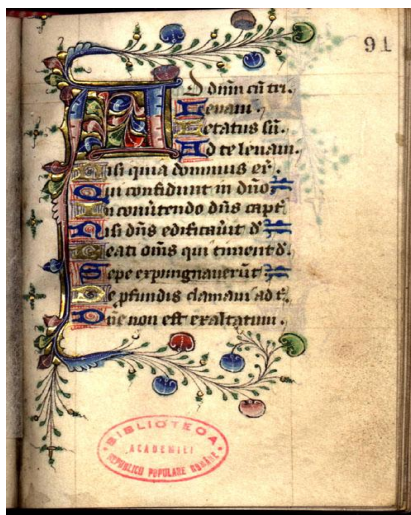 91
Ad dn̄m cū tri.
Leuaui.
Letatus sū.
Ad te leuaui.
Nisi quia dominus er̄.
Qui confidunt in dn̄o
In conũtendo dn̄s capt̄.
Nisi dn̄s edificauit d̄.
Beati om̄s qui timent d̄.
Sepe expungnauerūt
De pfundis clamaui ad t̄.
Dn̄e non est exaltatum.
BIBLIOTECA
ACADEMIEI
REPUBLICII POPULARE ROMÂNE